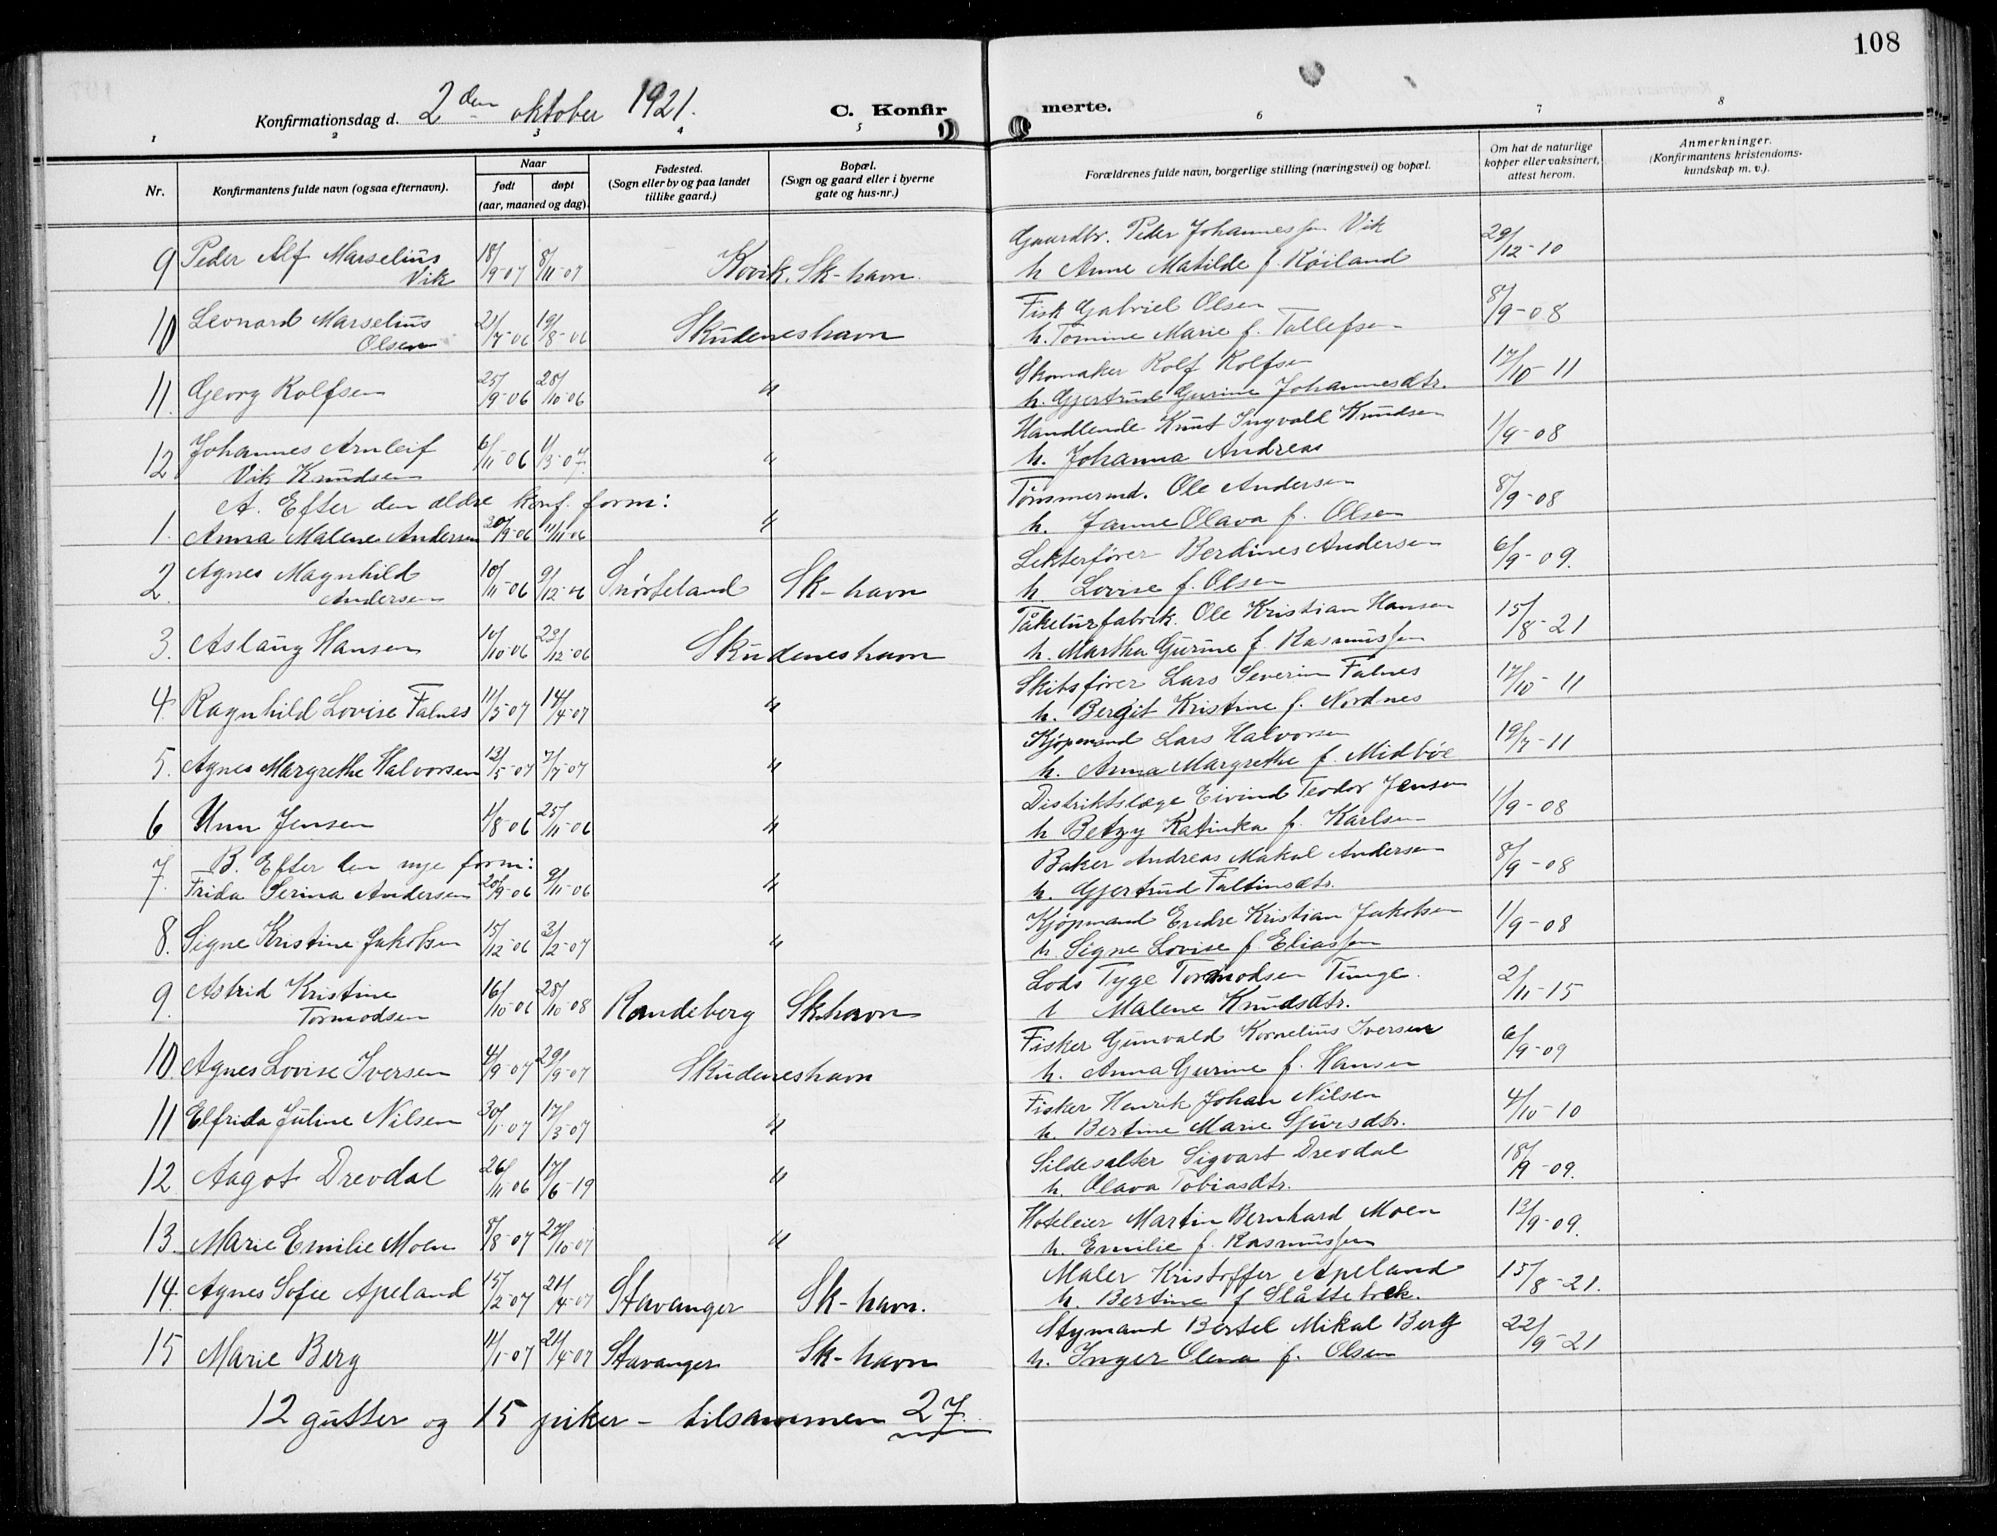 108
Konfirmationsdag d. 2den oktober 1921.
C. Konfirmerte.
1 2 3 4 5 6 7 8
Nr.
Konfirmantens fulde navn (ogsaa efternavn).
Naar
født døpt
(aar, maaned og dag).
Fødested.
(Sogn eller by og paa landet
tillike gaard.)
Bopæl.
(Sogn og gaard eller i byerne
gate og hus-nr.)
Forældrenes fulde navn, borgerlige stilling (næringsvei) og bopæl.
Om hat de naturlige
kopper eller vaksinert,
attest herom.
Anmerkninger.
(Konfirmantens kristendoms-
kundskap m. v.).
9 Peder Alf Marselius 18/9-07 8/11-07 Kovik. Sk-havn. Gaardbr. Peder Johannessen Vik 29/12-10
Vik h Anne Matilde f. Køiland
10 Leonard Marselius 21/7-06 19/8-06 Skudeneshavn Fisk Gabriel Olsen 8/9-08
Olsen h. Tomine Marie f. Tollefsen
11. Georg Rolfsen 25/9-06 28/10-06 " Skomaker Rolf Rolfsen 17/10-11
h. Gjertrud Gurine Johannesdtr.
12 Johannes Arnleif 6/11-06 1/3-07. " Handlende Knut Ingvald Knudsen 1/9-08
Vik Knudsen h. Johanna Andreas
A. Efter den ældre konf. form:
1. Anna Malene Andersen 30/9-06 11/11-06 " Tømmermd. Ole Andersen 8/9-08
h. Janne Olava f. Olsen
2. Agnes Magnhild 10/11-06 9/12-06 Snørteland Sk-havn Lekterfører Berdines Andersen 6/9-09.
Andersen h. Lovise f. Olsen
3. Aslaug Hansen 10/10-06 23/12-06 Skudeneshavn Ole Kristian Hansen 15/8-21
h. Martha Gurine f. Rasmussen
4. Ragnhild Lovise Falnes 11/3-07 14/4-07 " Skibsfører Lars Severin Falnes 17/10-11
h. Bergit Kristine f. Nordnes
5. Agnes Margrethe Halvorsen 13/5-07 7/7-07 " Kjøpmand Lars Halvorsen 19/7-11
h. Anna Margrethe f. Midbøe
6 Unn Jensen 1/8-06 25/11-06 " Distriktslæge Eivind Teodor Jensen 1/9-08
h Betzy Katinka f. Karlsen
B. Efter den nye form:
7. Frida Serina Andersen 20/9-06 9/11-06 " Baker Andreas Mikal Andersen 8/9-08
h. Gjertrud Faltinsdtr.
8. Signe Kristine Jakobsen 15/12-06 3/2-07 " Kjøpmand Endre Kristian Jakobsen 1/9-08
h. Signe Lovise f. Eliassen
9. Astrid Kristine 16/10-06 28/10-08 Randeberg Sk.havn Lods Tyge Tormodsen Tunge. 2/11-15
Tormodsen Malene Knudsdtr.
10. Agnes Lovise Iversen 4/9-07 29/9-07 Skudeneshavn Fisker Gunvald Kornelius Iversen 6/9-09
h. Anna Gurine f. Hansen
11 Elfrida Juline Nilsen 30/1-07 17/3-07 " Fisker Henrik Johan Nilsen 4/10-10
h. Bertine Marie Sjursdtr.
12 Aagot Drevdal 26/11-06 17/6-19 " Sildesalter Sigvart Drevdal 18/9-09.
h. Olava Tobiasdtr.
13. Marie Emilie Moen 8/8-07 27/10-07 " Hoteleier Martin Bernhard Moen 13/9-09.
h. Emilie f. Rasmussen
14. Agnes Sofie Apeland 15/2-07 21/4-07 Stavanger Sk-havn. Maler Kristoffer Apeland 15/8-21.
h. Bertine f Slåttebrek.
15 Marie Berg 11/1-07 21/4-07 Stavanger Sk-havn Stymand Bertel Mikal Berg 22/9-21
h. Inger Olena f. Olsen
12 gutter og 15 piker - tilsammen 27.